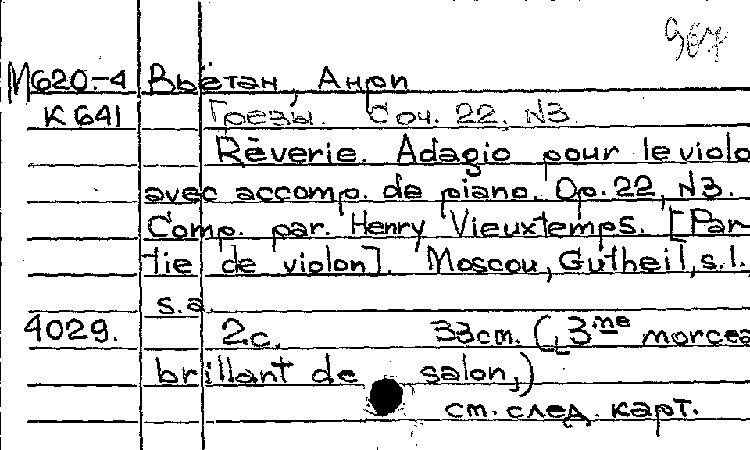 М620-4 Вьётан, Анри
К 641 Грезы. Соч. 22, N3.
Rêverie. Adagio pour le violo
avec accomp. de piano. Op. 22, N3.
Comp. par. Henry Vieuxtemps. [Par-
tie de violon]. Moscou, Gutheil, s.l.,
s.a.
4029. 2c. 33cm. („3me morcea
brillant de salon„)
см. след. карт.